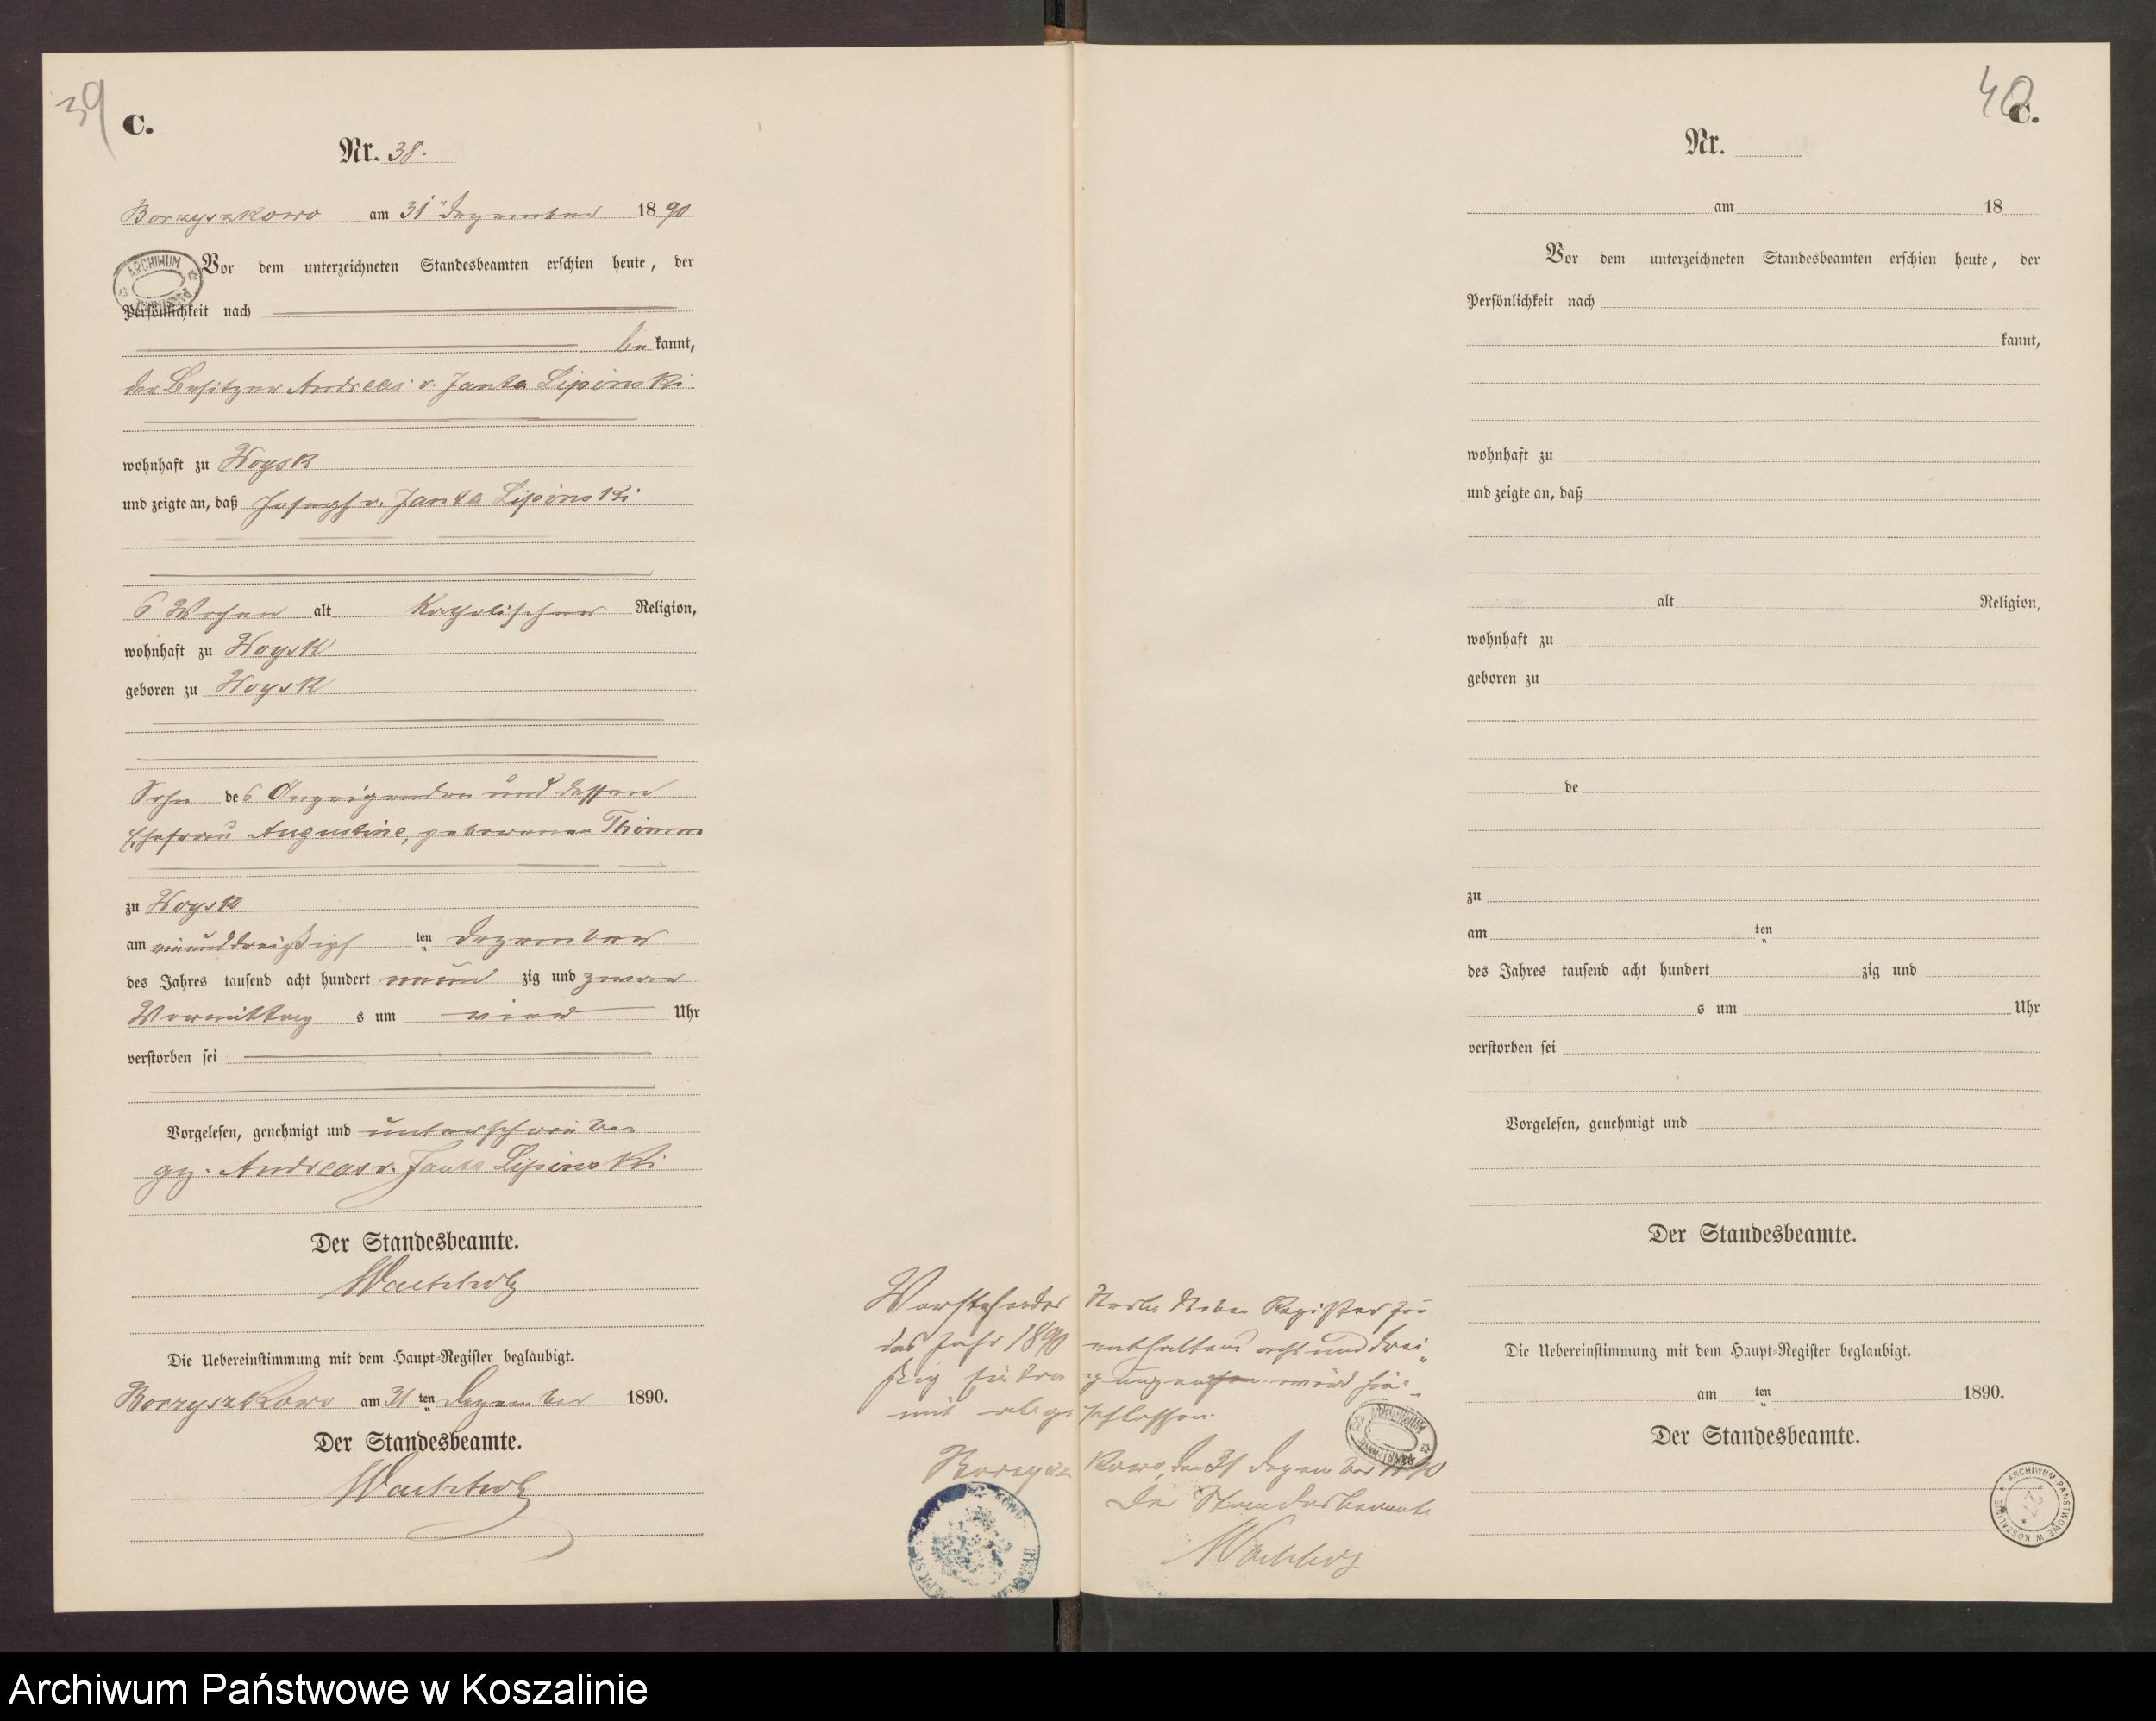 39
C.
Nr. 38.
Borzyszkowo am 31 Dezember 1890
Vor dem unterzeichneten Standesbeamten erschien heute, der
Persönlichkeit nach
be kannt,
der Besitzer Andreas v. Janta Lipinski
wohnhaft zu Woysk
und zeigte an, daß Joseph v. Janta Lipinski
6 Wochen alt katholischer Religion,
wohnhaft zu Woysk
geboren zu Woysk
Sohn des Anzeigenden und dessen
Ehefrau Augustine, geborenen
zu Woysk
am einunddreißigs ten Dezember
des Jahres tausend acht hundert neun zig und zwar
Vormittag s um vier Uhr
verstorben sei
Vorgelesen, genehmigt und unterschrieben
gez. Andreas v. Janta Lipinski
Der Standesbeamte.
Wachholz
Die Uebereinstimmung mit dem Haupt-Register beglaubigt.
Borzyszkowo am 31 ten Dezember 1890.
Der Standesbeamte.
Wachholz
Vorstehendes Sterbe Neben Register für
das Jahr 1890 enthaltend acht und drei
ßig Eintragungen wird hier
mit abgeschlossen.
Borzyszkowo, den 31 Dezember 1890
Der Standesbeamte
Wachholz
ARCHIWUM
40
C.
Nr.
am 18
Vor dem unterzeichneten Standesbeamten erschien heute, der
Persönlichkeit nach
kannt,
wohnhaft zu
und zeigte an, daß
alt Religion,
wohnhaft zu
geboren zu
de
zu
am ten
des Jahres tausend acht hundert zig und
s um Uhr
verstorben sei
Vorgelesen, genehmigt und
Der Standesbeamte.
Die Uebereinstimmung mit dem Haupt-Register beglaubigt.
am ten 1890.
Der Standesbeamte.
ARCHIWUM PAŃSTWOWE W KOSZALINIE
Archiwum Państwowe w Koszalinie